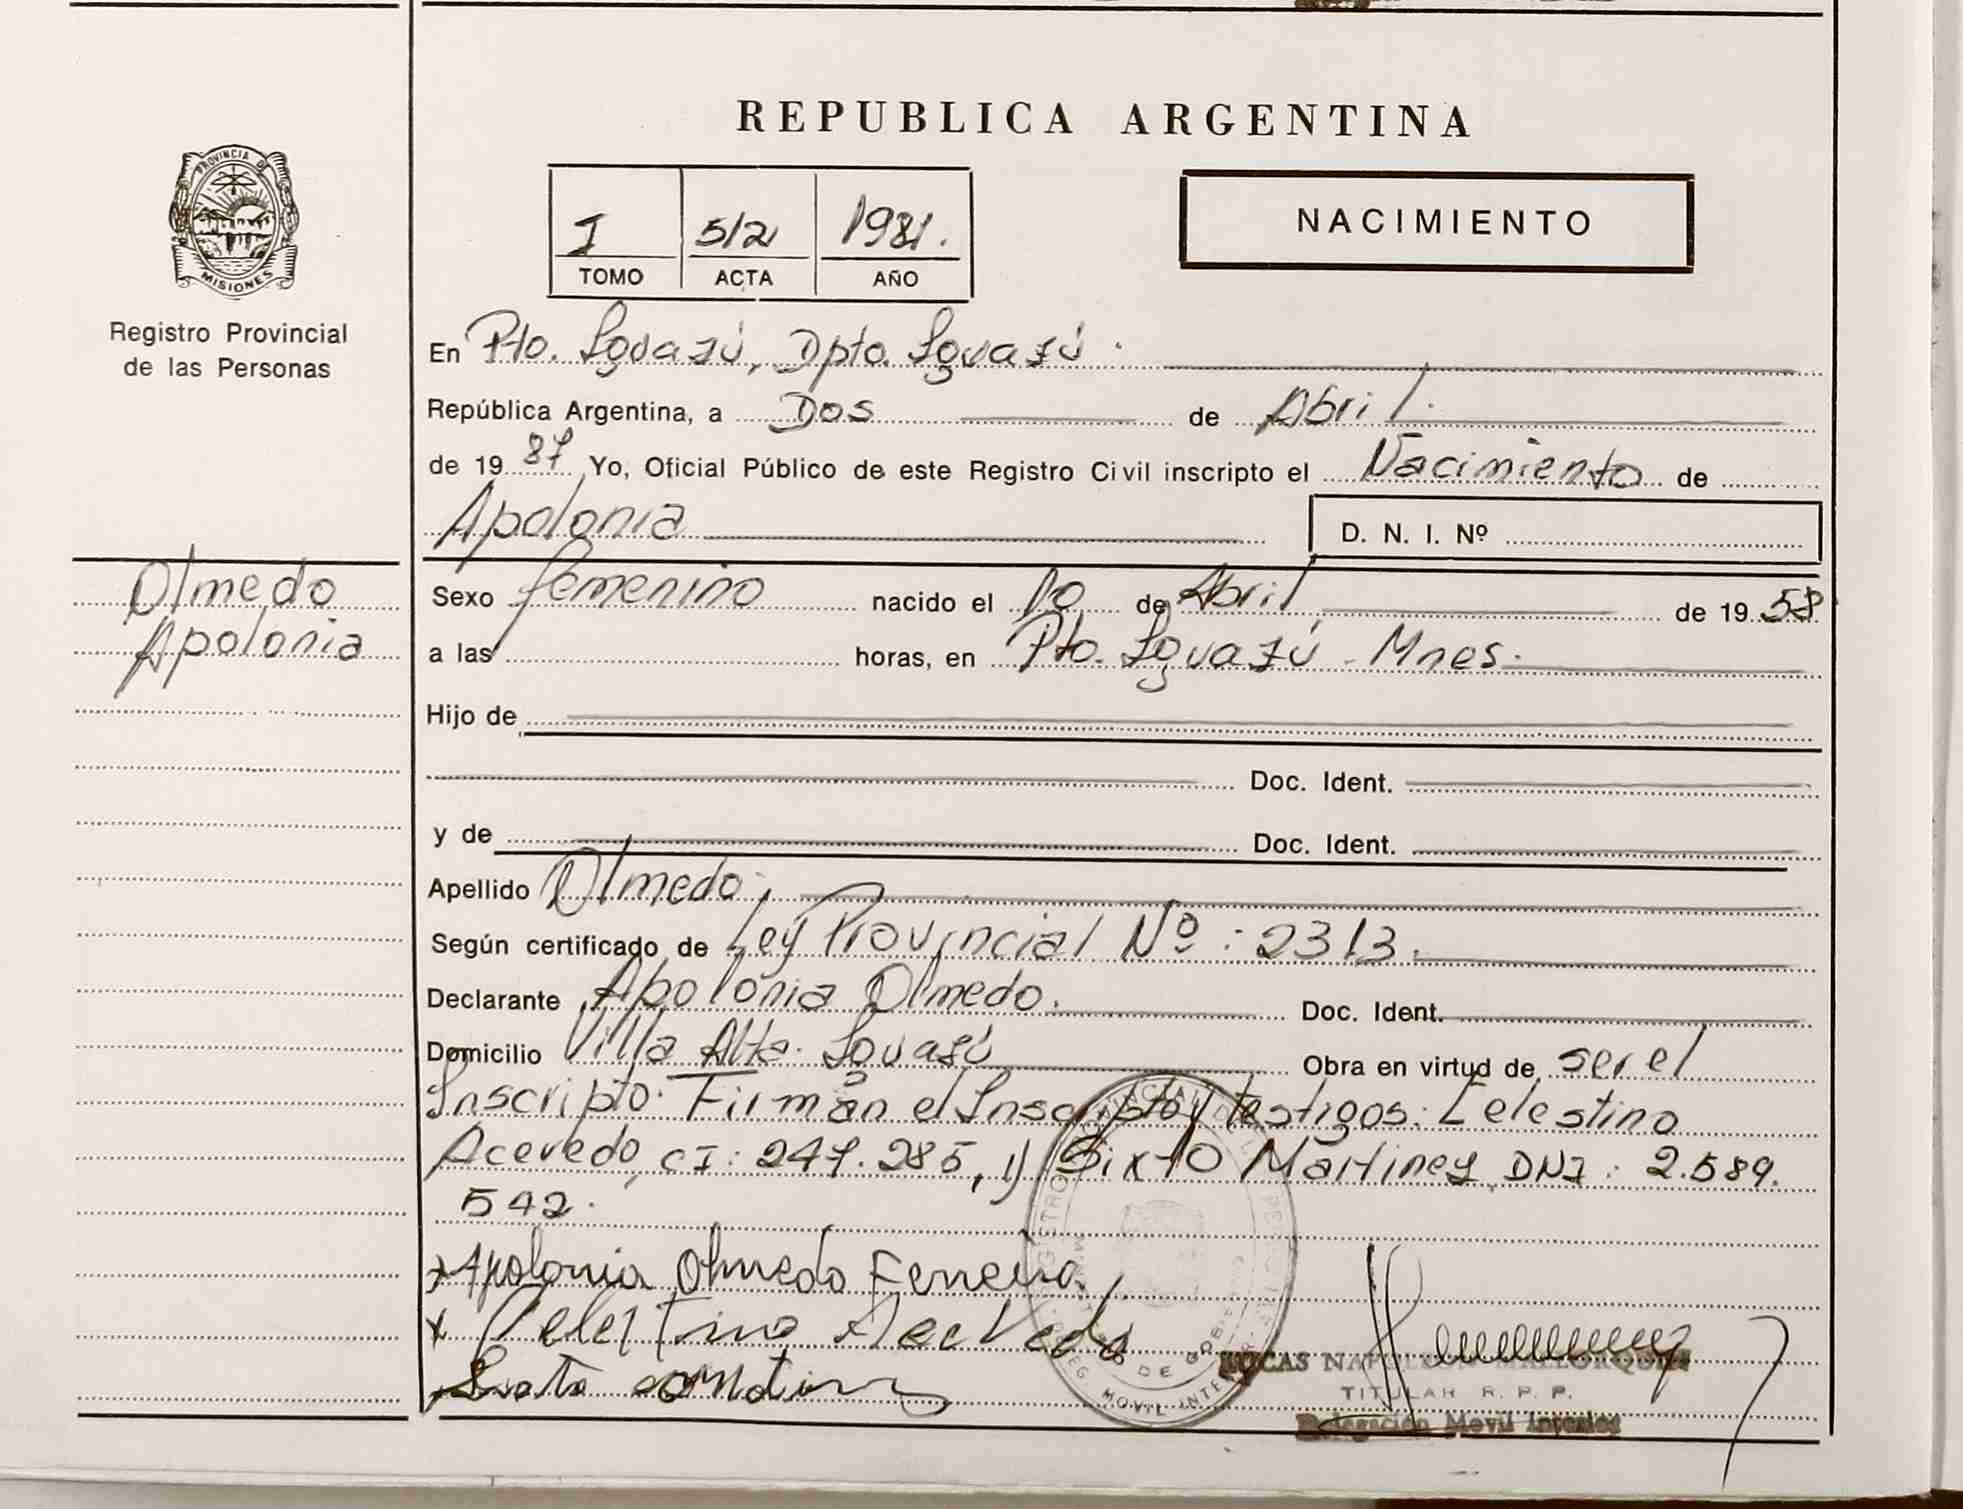 REPUBLICA ARGENTINA
PROVINCIA DE MISIONES
Registro Provincial
de las Personas
I 512 1981.
TOMO ACTA AÑO
NACIMIENTO
En Pto. Iguazú, Dpto. Iguazú.
República Argentina, a Dos de Abril.
de 19 87 Yo, Oficial Público de este Registro Civil inscripto el Nacimiento de
Apolonia D. N. I. Nº
Olmedo
Apolonia
Sexo femenino nacido el 10 de Abril de 19 58
a las horas, en Pto. Iguazú - Mnes.
Hijo de
Doc. Ident.
y de Doc. Ident.
Apellido Olmedo.
Según certificado de Ley Provincial Nº: 2313.
Declarante Apolonia Olmedo. Doc. Ident.
Domicilio Villa Alta. Iguazú Obra en virtud de ser el
Inscripto. Firman el Inscripto y testigos: Celestino
Acevedo, CI: 247.285, y Sixto Martinez, DNI: 2.589.
542.
x Apolonia Olmedo Ferreira
x Celestino Acevedo
LUCAS NAPOLEON MALLORQUIN
TITULAR R. P. P.
Delegación Movil Interior